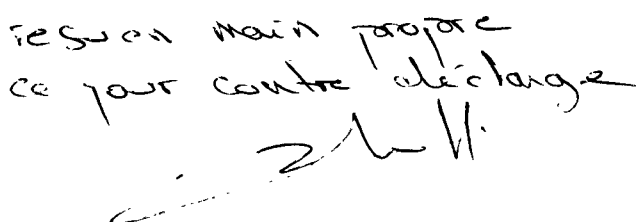 reçu en main propre
ce jour contre décharge